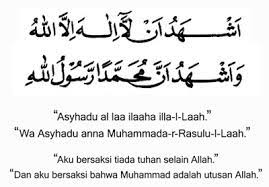 اَشْهَدُ اَنْ لَا اِلٰهَ اِلَّا اللّٰهُ
وَاَشْهَدُ اَنَّ مُحَمَّدًا رَّسُوْلُ اللّٰهِ
“Asyhadu al laa ilaaha illa-l-Laah.”
“Wa Asyhadu anna Muhammada-r-Rasulu-l-Laah.”
“Aku bersaksi tiada tuhan selain Allah.”
“Dan aku bersaksi bahwa Muhammad adalah utusan Allah.”